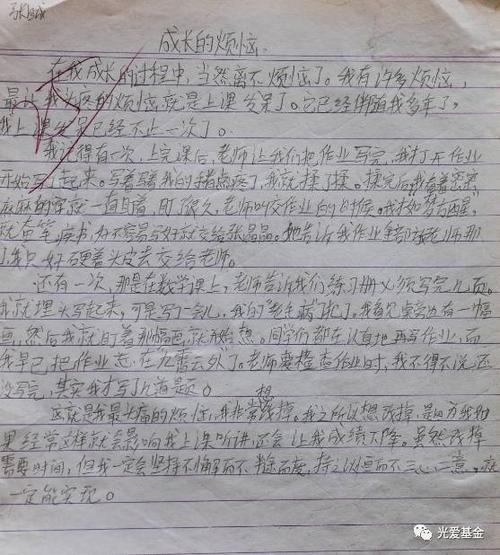 成长的烦恼
在我成长的过程中，当然离不烦恼了。我有许多烦恼，
最让我头疼的烦恼就是上课发呆了。它已经伴随我多年了，
我上课发呆已经不止一次了。
我记得有一次，上完课后，老师让我们把作业写完，我打开作业
开始写了起来。写着写着我的有点疼了，我就揉了揉。揉完后我看着密密
麻麻的字就一直盯着，盯了很久，老师叫交作业的时候。我才如梦方醒，
就奋笔疾书，好不容易写好就交给张晶晶。她告诉我作业全部在老师那
了我只好硬着头皮去交给老师。
还有一次，那是在数学课上，老师告诉我们练习册必须写完几页。
我就埋头写起来，可是写了一会儿，我的“老毛病”犯了。我看见桌旁边有一幅
画，然后我就盯着那幅画，就开始想。同学们都在认真地写作业，而
我早已把作业忘在九霄云外了。老师要检查作业时，我不得不说还
没写完，其实我才写了几道题。
这就是我最头痛的烦恼，我非常想改掉。我之所以想改掉，是因为我如
果经常这样就会影响我上课听讲，还会让我成绩下降。虽然改掉
需要时间，但我一定会坚持不懈而不半途而废，持之以恒而不三心二意，就
一定能实现。
光爱基金